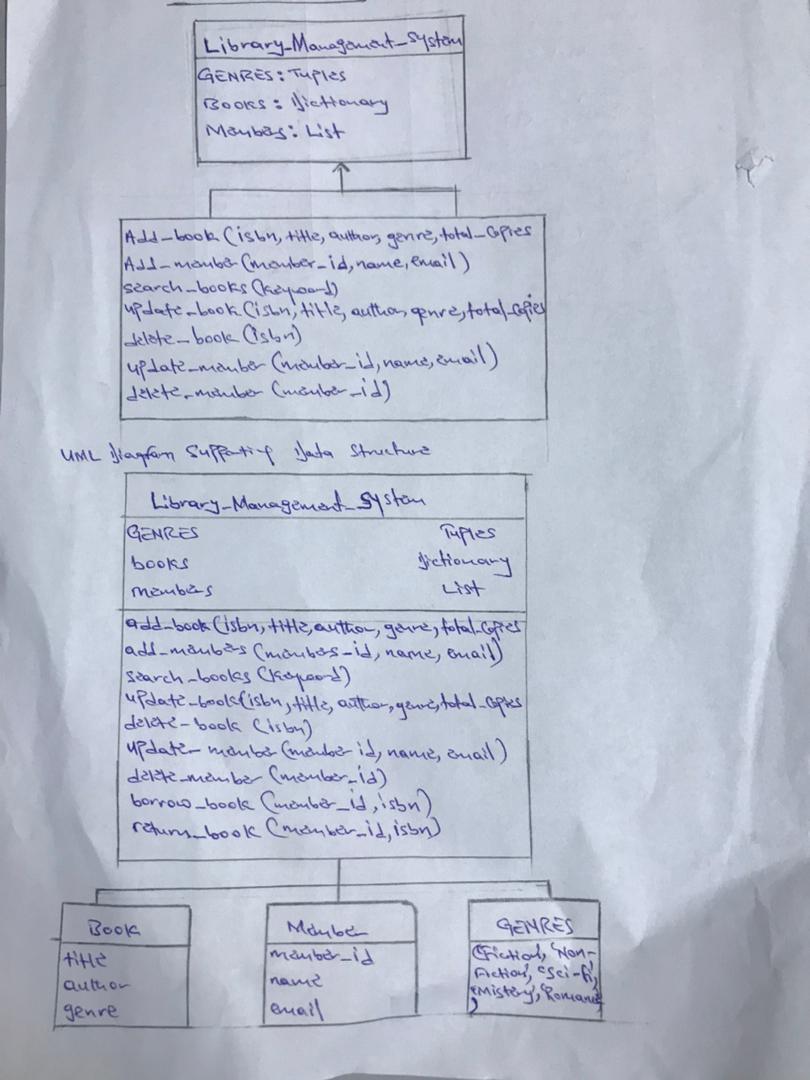 Library_Management_System
GENRES: Tuples
Books: Dictionary
Members: List
Add_book (isbn, title, author, genre, total_copies
Add_member (member_id, name, email)
search_books (keyword)
update_book (isbn, title, author, genre, total_copies
delete_book (isbn)
update_member (member_id, name, email)
delete_member (member_id)
UML Diagram Supporting Data Structure
Library_Management_System
GENRES Tuples
books Dictionary
members List
add_book (isbn, title, author, genre, total_copies
add_members (members_id, name, email)
search_books (keyword)
update_book (isbn, title, author, genre, total_copies
delete_book (isbn)
update_member (member id, name, email)
delete_member (member_id)
borrow_book (member_id, isbn)
return_book (member_id, isbn)
Book
title
author
genre
Member
member_id
name
email
GENRES
('Fiction', 'Non-
Fiction', 'Sci-fi',
'Mistery', 'Romance'
)